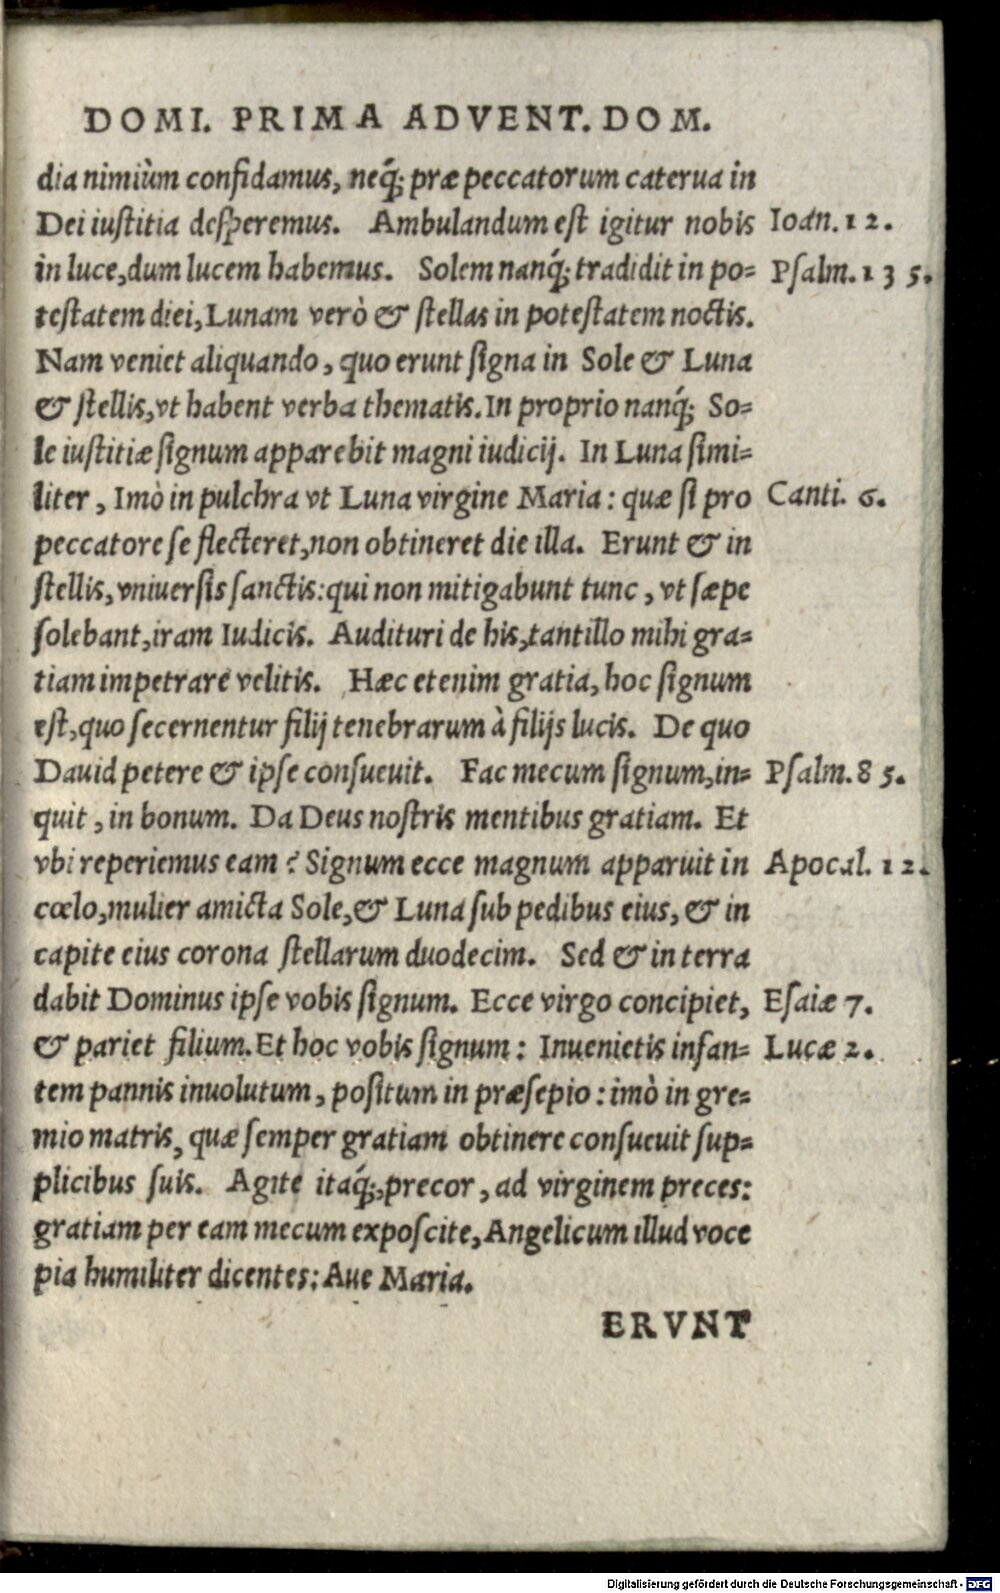 DOMI. PRIMA ADVENT. DOM.
dia nimiùm confidamus, neq́; præ peccatorum caterua in
Dei iuſtitia deſperemus. Ambulandum eſt igitur nobis Ioan. 12.
in luce, dum lucem habemus. Solem nanq́; tradidit in po= Pſalm. 135.
teſtatem diei, Lunam verò & ſtellas in poteſtatem noctis.
Nam veniet aliquando, quo erunt ſigna in Sole & Luna
& ſtellis, vt habent verba thematis. In proprio nanq́; So=
le iuſtitiæ ſignum apparebit magni iudicij. In Luna ſimi=
liter, Imò in pulchra vt Luna virgine Maria: quæ ſi pro Canti. 6.
peccatore ſe flecteret, non obtineret die illa. Erunt & in
ſtellis, vniuerſis ſanctis: qui non mitigabunt tunc, vt ſæpe
ſolebant, iram Iudicis. Audituri de his, tantillo mihi gra=
tiam impetrare velitis. Hæc etenim gratia, hoc ſignum
eſt, quo ſecernentur filij tenebrarum à filijs lucis. De quo
Dauid petere & ipſe conſueuit. Fac mecum ſignum, in= Pſalm. 85.
quit, in bonum. Da Deus noſtris mentibus gratiam. Et
vbi reperiemus eam? Signum ecce magnum apparuit in Apocal. 12.
cœlo, mulier amicta Sole, & Luna ſub pedibus eius, & in
capite eius corona ſtellarum duodecim. Sed & in terra
dabit Dominus ipſe vobis ſignum. Ecce virgo concipiet, Eſaiæ 7.
& pariet filium. Et hoc vobis ſignum: Inuenietis infan= Lucæ 2.
tem pannis inuolutum, poſitum in præſepio: imò in gre=
mio matris, quæ ſemper gratiam obtinere conſueuit ſup=
plicibus ſuis. Agite itaq́;, precor, ad virginem preces:
gratiam per eam mecum expoſcite, Angelicum illud voce
pia humiliter dicentes: Aue Maria.
ERVNT
Digitalisierung gefördert durch die Deutsche Forschungsgemeinschaft - DFG